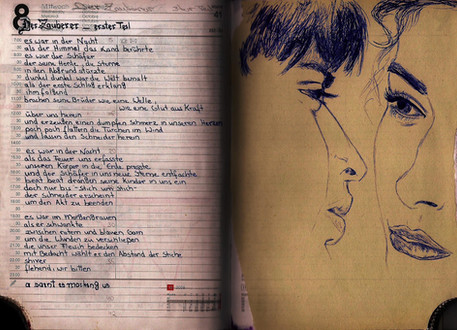 8
Der Zauberer ... erster Teil
es war in der Nacht
als der Himmel das Land berührte
es war der Schäfer
der seine Herde, die Sterne
in den Abgrund stürzte
dunkel dunkel war die Welt bemalt
als der erste Schlaf erklang
ihm folgend
brachen seine Brüder wie eine Welle
wie eine Glut aus Kraft
über uns herein
und erzeugten einen dumpfen Schmerz in unseren Herzen
poch poch flattern die Türchen im Wind
und lassen den Schneider herein
es war in der Nacht
als das Feuer uns erfasste
unseren Körper in die Erde presste
und der Schäfer in uns neue Sterne entfachte
beat beat draußen seine Kinder in uns ein
doch nur bis - Stich um Stich -
der Schneider erscheint
um den Akt zu beenden
es war im Morgengrauen
als er schwankte
zwischen rotem und blauem Garn
um die Wunden zu verschließen
die unser Fleisch bedecken
mit Bedacht wählt er den Abstand der Stiche
shiver
flehend, wir bitten
a saint is mocking us